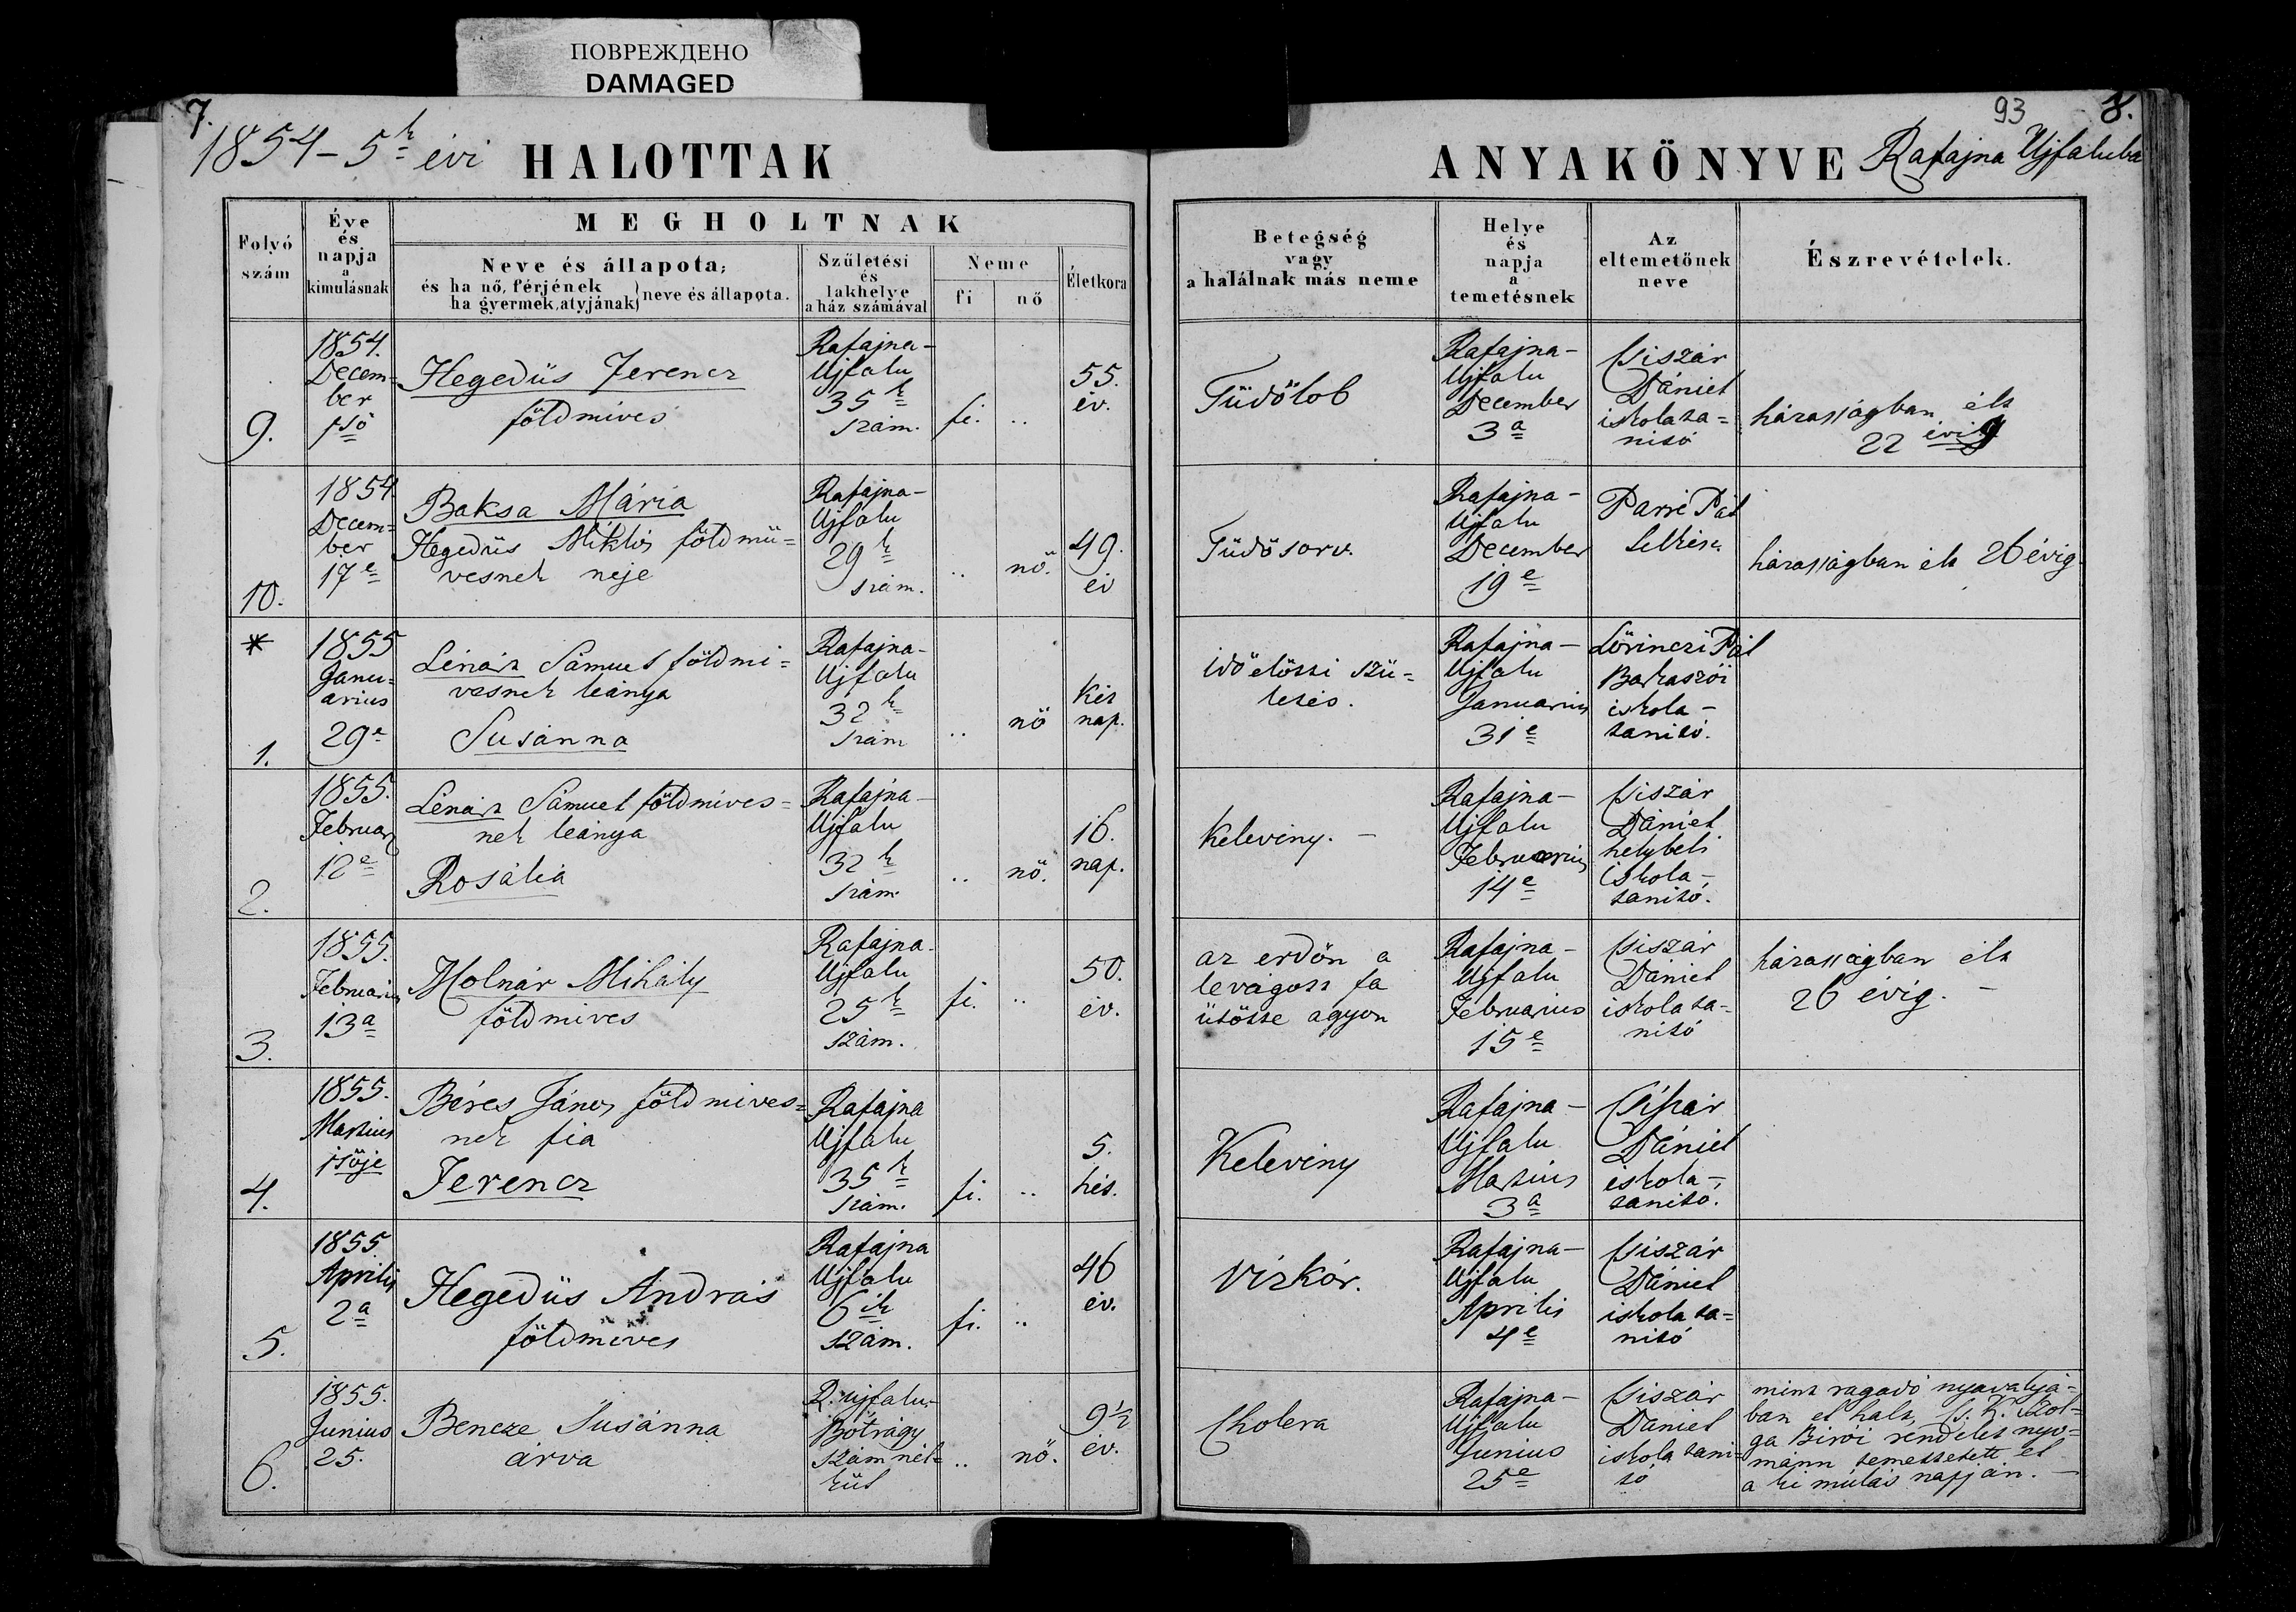 ПОВРЕЖДЕНО
DAMAGED
7.
1854-5k évi HALOTTAK
93 8.
ANYAKÖNYVE Rafajna Ujfaluba
Folyó szám
Éve és napja a kimulásnak
MEGHOLTNAK
Neve és állapota;
és ha nő, férjének
ha gyermek, atyjának } neve és állapota.
Születési és lakhelye a ház számával
Neme
fi
nő
Életkora
Betegség vagy a halálnak más neme
Helye és napja a temetésnek
Az eltemetőnek neve
Észrevételek.
9.
1854.
Decem=
ber
1ső
Hegedüs Ferencz
földmives
Rafajna-
Ujfalu
35k
szám.
fi.
..
55.
év.
Tüdőlob
Rafajna-
Ujfalu
December
3a
Csiszár
Dániel
iskola ta=
nitó
házasságban élt
22 évig
10.
1854
Decem=
ber
17e
Baksa Mária
Hegedüs Miklós földmü=
vesnek neje
Rafajna-
Ujfalu
29k
szám.
..
nő.
49.
év
Tüdősorv.
Rafajna-
Ujfalu
December
19e
Pál
Lelkész
házasságban élt 26 évig
*
1.
1855
Janu=
arius
29e
Lénárt Sámuel földmi=
vesnek leánya
Susánna
Rafajna-
Ujfalu
32k
szám
..
nő
két
nap.
idő előtti szü=
letés.
Rafajna-
Ujfalu
Januarius
31e
Lörinczi Pál
Barkaszói
iskola-
tanitó.
2.
1855.
Februar
12e
Lénárt Sámuel földmives=
nek leánya
Rosália
Rafajna-
Ujfalu
32k
szám
..
nő.
16.
nap.
Keleviny. -
Rafajna-
Ujfalu
Februarius
14e
Csiszár
Dániel
helybeli
iskola-
tanitó.
3.
1855.
Februarius
13a
Molnár Mihály
földmives
Rafajna-
Ujfalu
25k
szám.
fi.
..
50.
év.
az erdőn a
levágott fa
ütötte agyon
Rafajna-
Ujfalu
Februarius
15e
Csiszár
Dániel
iskola ta=
nitó
házasságban élt
26 évig. -
4.
1855.
Martius
1sője
Béres János földmives=
nek fia
Ferencz
Rafajna
Ujfalu
35k
szám.
fi.
..
5.
hét.
Keleviny
Rafajna-
Ujfalu
Martius
3a
Csiszár
Dániel
iskola-
tanitó.
5.
1855.
Aprilis
2a
Hegedüs András
földmives
Rafajna
Ujfalu
6ik
szám.
fi.
..
46
év.
Vizkór.
Rafajna-
Ujfalu
Aprilis
4e
Csiszár
Dániel
iskola ta=
nitó
6.
1855.
Junius
25.
Bencze Susánna
árva
R. ujfalu-
Bótrágy
szám nél=
kül
..
nő.
9½
év.
Cholera
Rafajna-
Ujfalu
Junius
25e
Csiszár
Dániel
iskola tani=
tó
mint ragadó nyavalyá=
ban el halt, Cs. K. Szol=
ga Birói rendelet nyo=
mánn temettetett el
a ki múlás napján. -